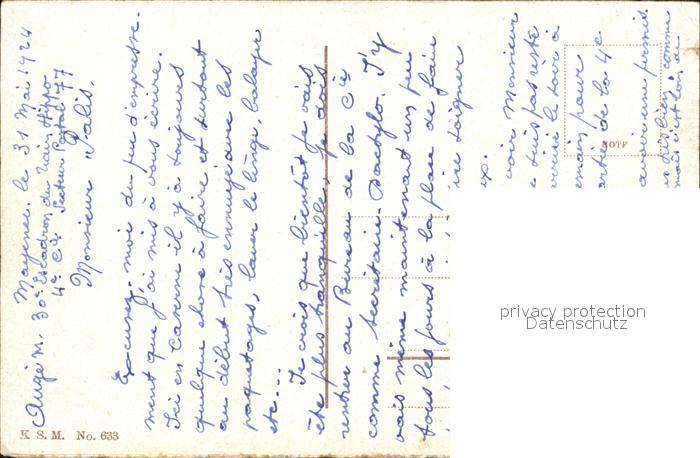 Mayence, le 31 Mai 1924
30e Escadron du Train Hippo
4e Cie Secteur Postal 77
Monsieur
Excusez-moi du peu d'empresse-
ment que j'ai mis à vous écrire.
Ici en Caserne il y a toujours
quelque chose à faire et surtout
au début très ennuyé avec les
paquetages, laver le linge, balayer
etc...
Je crois que bientôt je vais
être plus tranquille. Je dois
rentrer au Bureau de la Cie
comme secrétaire-Dactylo. J'y
vais même maintenant un peu
tous les jours à la place de faire
soigner
voir Monsieur
suis pas resté
le soir à
pour
de la 4e
permis.
bien, comme
mais
NOTF
K S.M. No. 633
privacy protection
Datenschutz